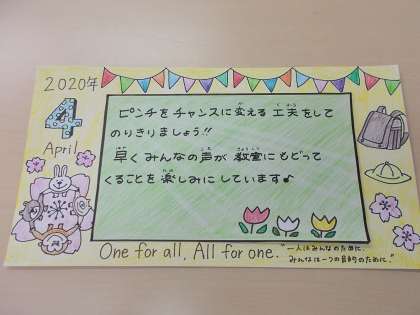 2020年
4
April
ピンチをチャンスに変える工夫をして
のりきりましょう!!
早くみんなの声が教室にもどって
くることを楽しみにしています♪
One for all, All for one.
"一人はみんなのために、
みんなは一つの目的のために."